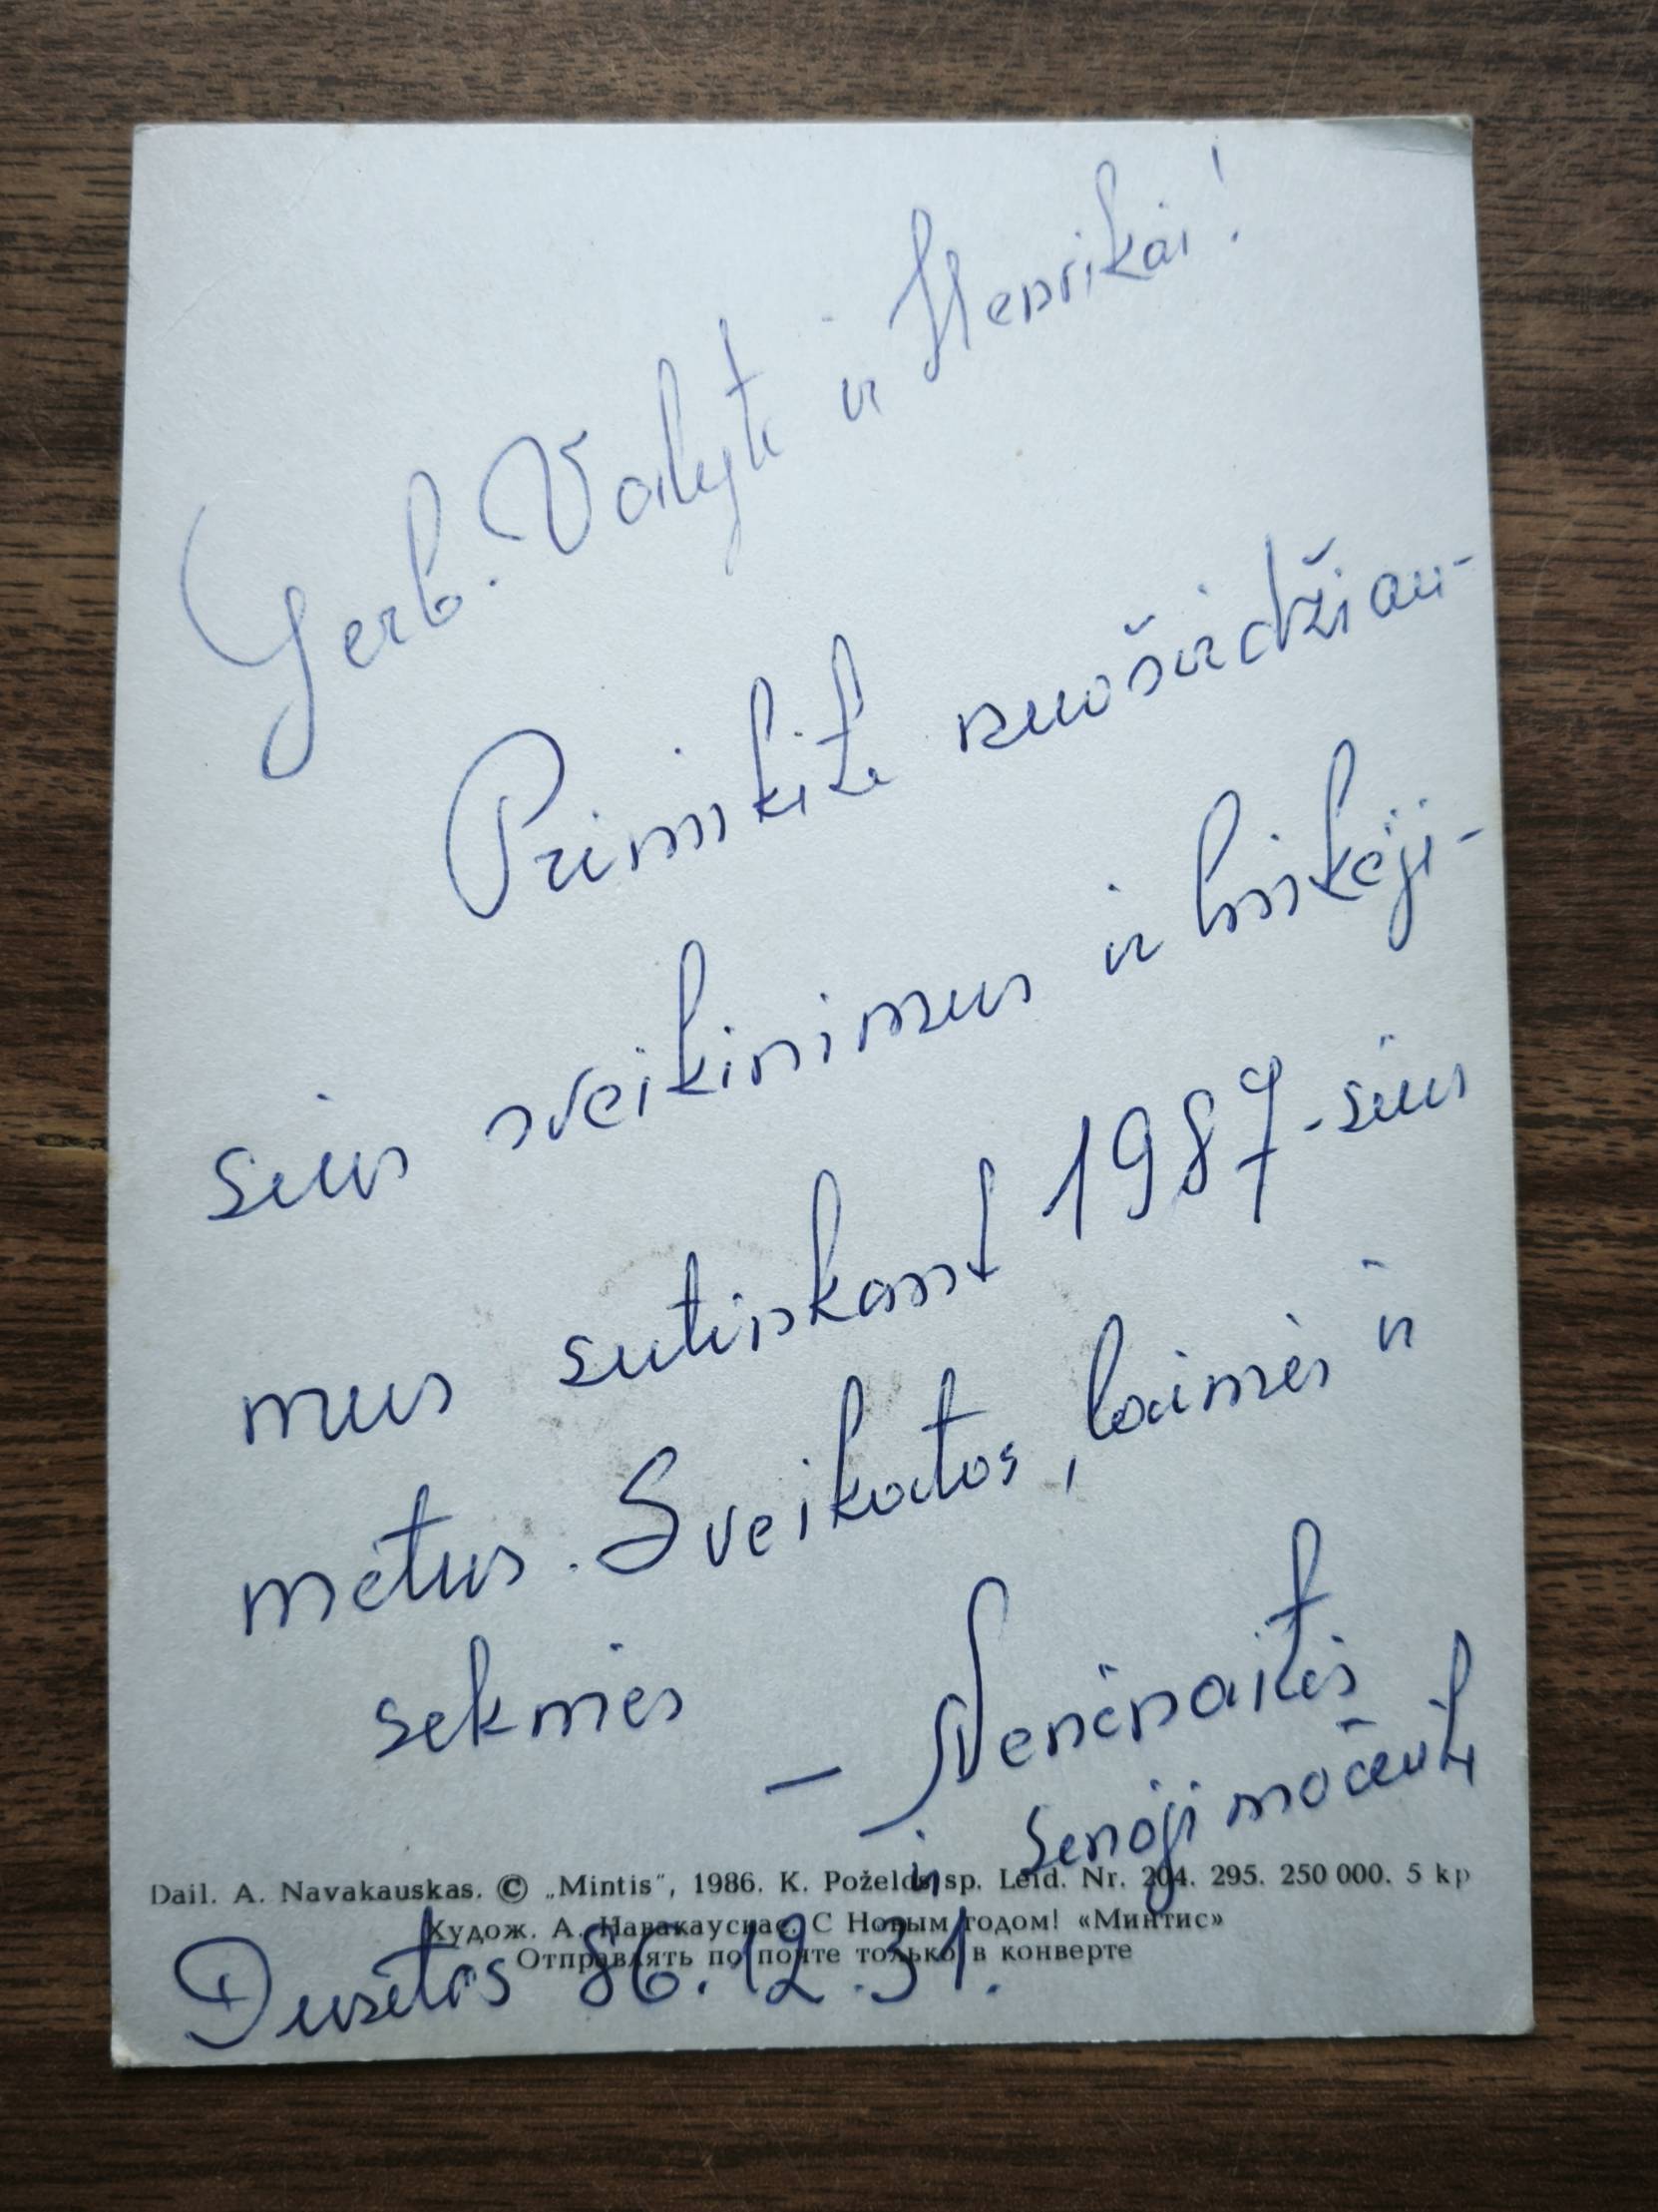 Gerb. Valyte ir Henrikai!
Priimkite nuoširdžiau-
sius sveikinimus ir linkėji-
mus sutinkant 1987-sius
metus. Sveikatos, laimės ir
sekmės – Nenėnaitės
ir Senoji močiutė
Dail. A. Navakauskas. © „Mintis", 1986. K. Poželos sp. Leid. Nr. 204. 295. 250 000. 5 kp
Худож. А. Навакаускас. С Новым годом! «Минтис»
Отправлять по почте только в конверте
Dusetos 86.12.31.